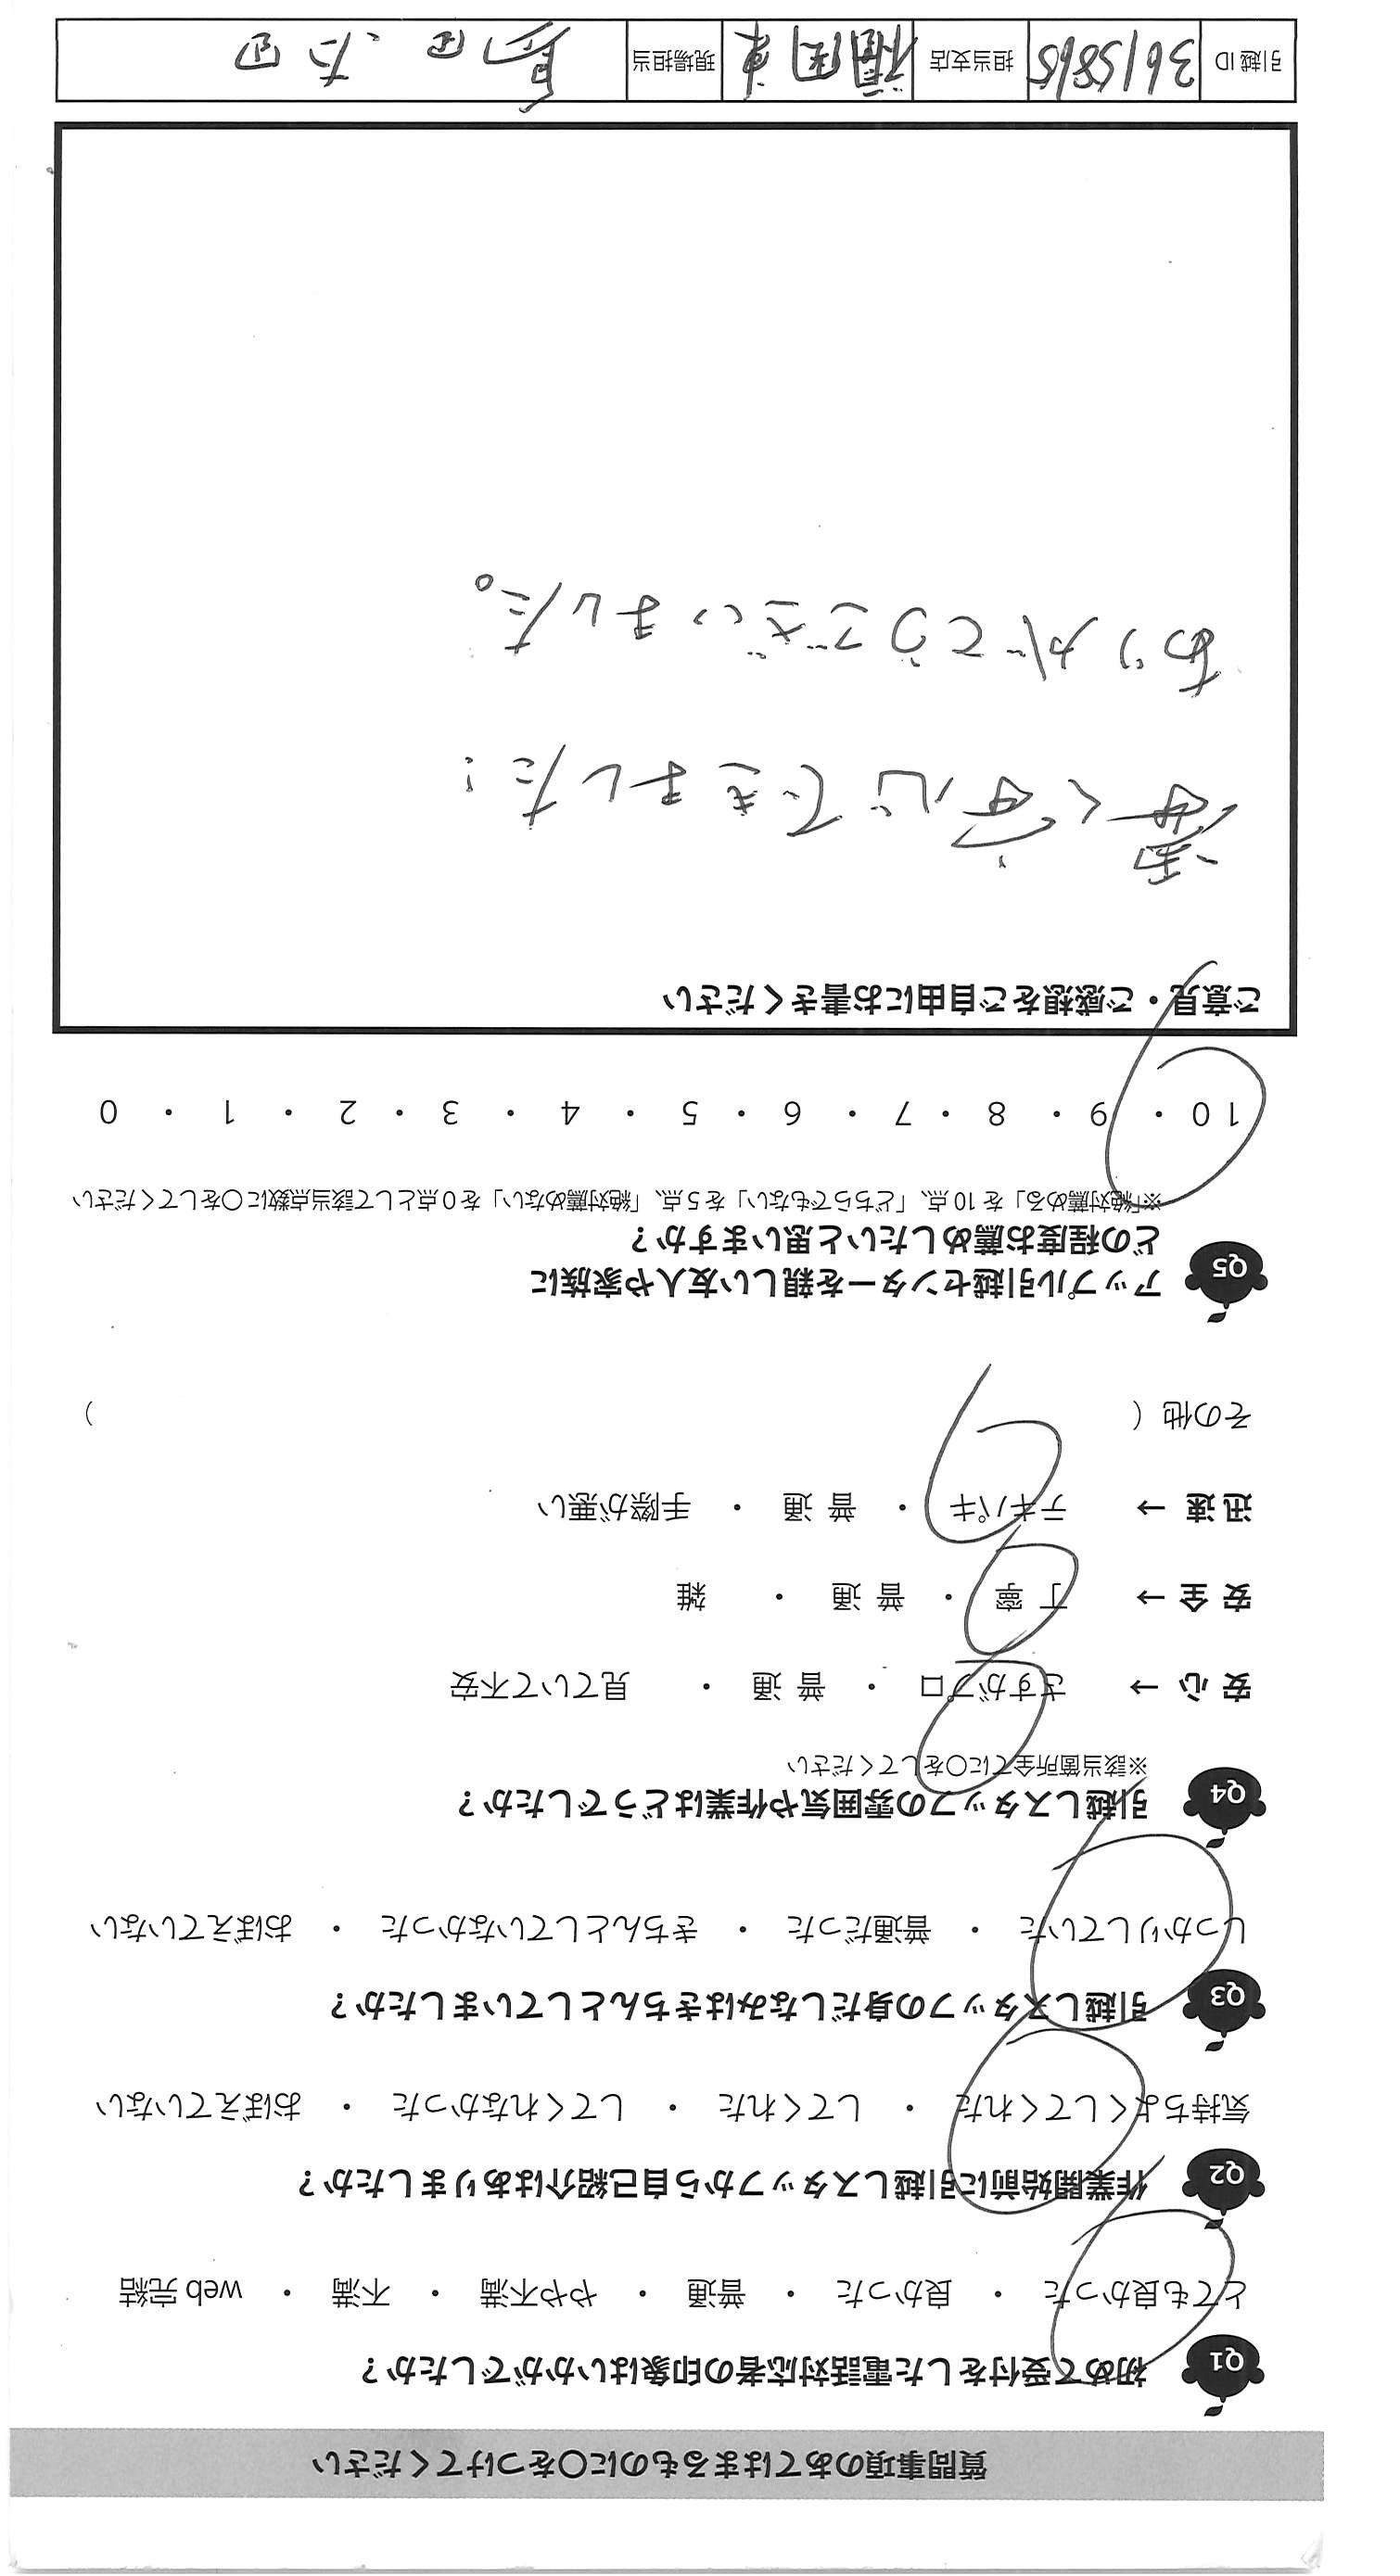 質問事項のあてはまるものに○をつけてください
Q1 初めて受付をした電話対応者の印象はいかがでしたか？
とても良かった ・ 良かった ・ 普通 ・ やや不満 ・ 不満 ・ web 完結
Q2 作業開始前に引越しスタッフから自己紹介はありましたか？
気持ちよくしてくれた ・ してくれた ・ してくれなかった ・ おぼえていない
Q3 引越しスタッフの身だしなみはきちんとしていましたか？
しっかりしていた ・ 普通だった ・ きちんとしていなかった ・ おぼえていない
Q4 引越しスタッフの雰囲気や作業はどうでしたか？
※該当箇所全てに○をしてください
安心 → さすがプロ ・ 普通 ・ 見ていて不安
安全 → 丁寧 ・ 普通 ・ 雑
迅速 → テキパキ ・ 普通 ・ 手際が悪い
その他（ ）
Q5 アップル引越センターを親しい友人や家族に
どの程度お薦めしたいと思いますか？
※「絶対薦める」を10点、「どちらでもない」を5点、「絶対薦めない」を0点として該当点数に○をしてください
10 ・ 9 ・ 8 ・ 7 ・ 6 ・ 5 ・ 4 ・ 3 ・ 2 ・ 1 ・ 0
ご意見・ご感想をご自由にお書きください
凄く安心できました！
ありがとうございました。
引越ID 3615865 担当支店 福岡東 現場担当